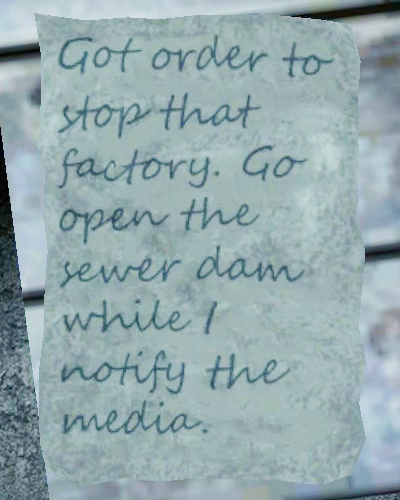 Got order to
stop that
factory. Go
open the
sewer dam
while I
notify the
media.